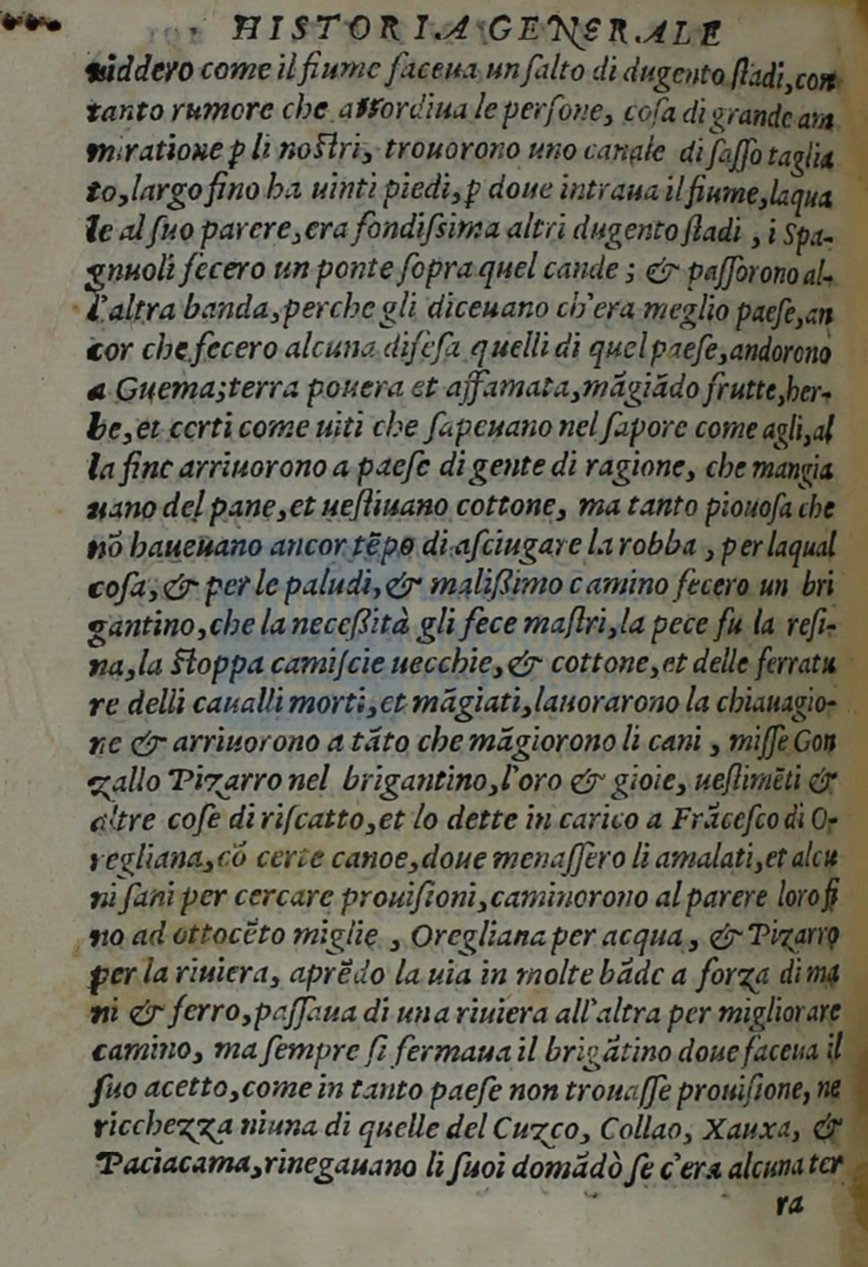 HISTORIA GENERALE
uiddero come il fiume faceua un ſalto di dugento ſtadi, con
tanto rumore che aſſordiua le perſone, coſa di grande am
miratione p li noſtri, trouorono uno canale di ſaſſo taglia
to, largo fino ha uinti piedi, p doue intraua il fiume, laqua
le al ſuo parere, era fondiſsima altri dugento ſtadi, i Spa-
gnuoli fecero un ponte ſopra quel canale; & paſſorono al-
l'altra banda, perche gli diceuano ch'era meglio paeſe, an
cor che fecero alcuna difeſa quelli di quel paeſe, andorono
a Guema; terra pouera et affamata, mãgiãdo frutte, her-
be, et certi come uiti che ſapeuano nel ſapore come agli, al
la fine arriuorono a paeſe di gente di ragione, che mangia
uano del pane, et ueſtiuano cottone, ma tanto piouoſa che
nõ haueuano ancor tẽpo di aſciugare la robba, per laqual
coſa, & per le paludi, & maliſſimo camino fecero un bri
gantino, che la neceſſità gli fece maſtri, la pece fu la reſi-
na, la ſtoppa camiſcie uecchie, & cottone, et delle ferratu
re delli caualli morti, et mãgiati, lauorarono la chiauagio-
ne & arriuorono a tãto che mãgiorono li cani, miſſe Gon
zallo Pizarro nel brigantino, l'oro & gioie, ueſtimẽti &
altre coſe di riſcatto, et lo dette in carico a Frãceſco di O-
regliana, cõ certe canoe, doue menaſſero li amalati, et alcu
ni ſani per cercare prouiſioni, caminorono al parere loro fi
no ad ottocẽto miglie, Oregliana per acqua, & Pizarro
per la riuiera, aprẽdo la uia in molte bãde a forza di ma
ni & ferro, paſſaua di una riuiera all'altra per migliorare
camino, ma ſempre ſi fermaua il brigãtino doue faceua il
ſuo acetto, come in tanto paeſe non trouaſſe prouiſione, ne
ricchezza niuna di quelle del Cuzco, Collao, Xauxa, &
Paciacama, rinegauano li ſuoi domãdò ſe c'era alcuna ter
ra